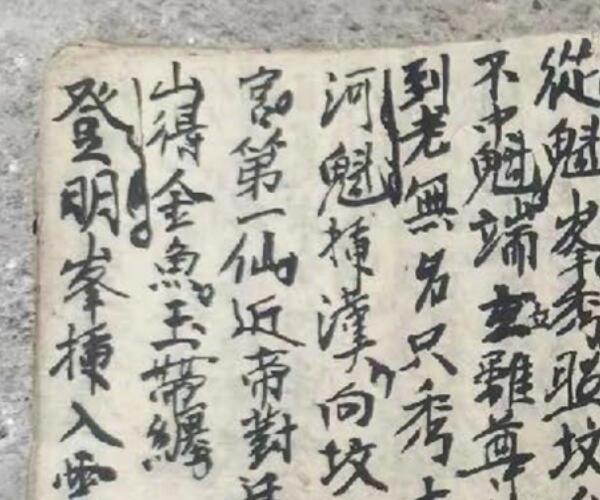 從魁峯秀照坟
不中魁端 雖尊
到老無名只秀
河魁揷漢向坟
宮第一仙近帝對
山得金魚玉帶纏
登明峯揷入雲